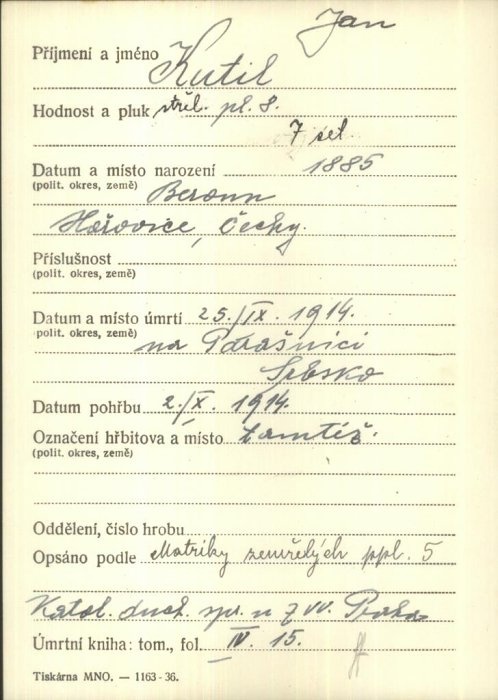 Jan
Příjmení a jméno Kutil
Hodnost a pluk střel. pl. 8.
7 set.
Datum a místo narození 1885
(polit. okres, země) Beroun
Hořovice, Čechy.
Příslušnost
(polit. okres, země)
Datum a místo úmrtí 25./IX. 1914.
polit. okres, země)
na Parašnici
Srbsko
Datum pohřbu 2./X. 1914.
Označení hřbitova a místo tamtéž.
(polit. okres, země)
Oddělení, číslo hrobu
Opsáno podle Matriky zemřelých ppl. 5
Katol. duch. spr. u ZVV. Praha
Úmrtní kniha: tom., fol. IV. 15.
Tiskárna MNO. — 1163-36.